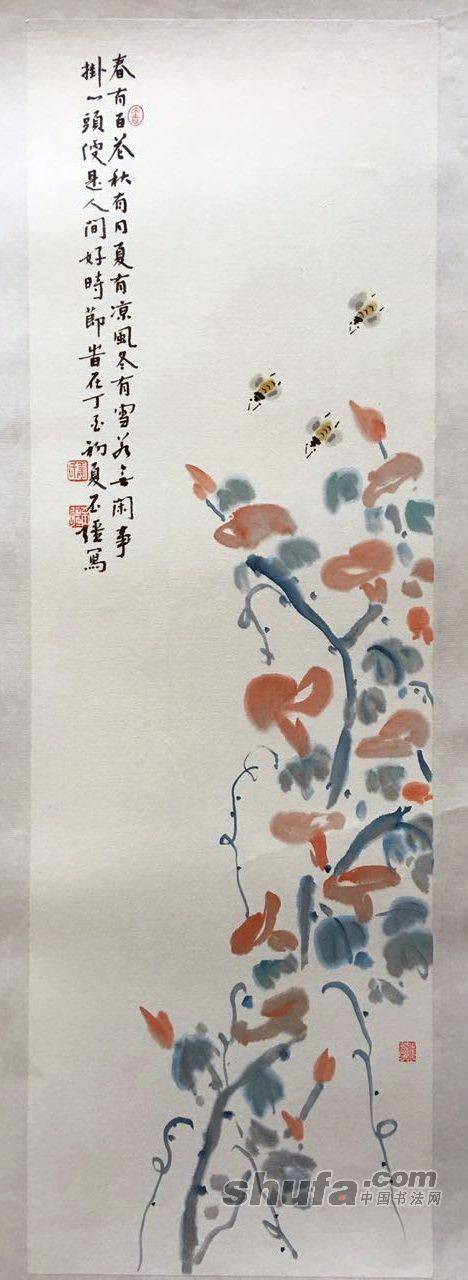 春有百花秋有月夏有凉風冬有雪若无閑事
掛心頭便是人間好時節 歲在丁酉初夏 寫
shufa.com
中国书法网